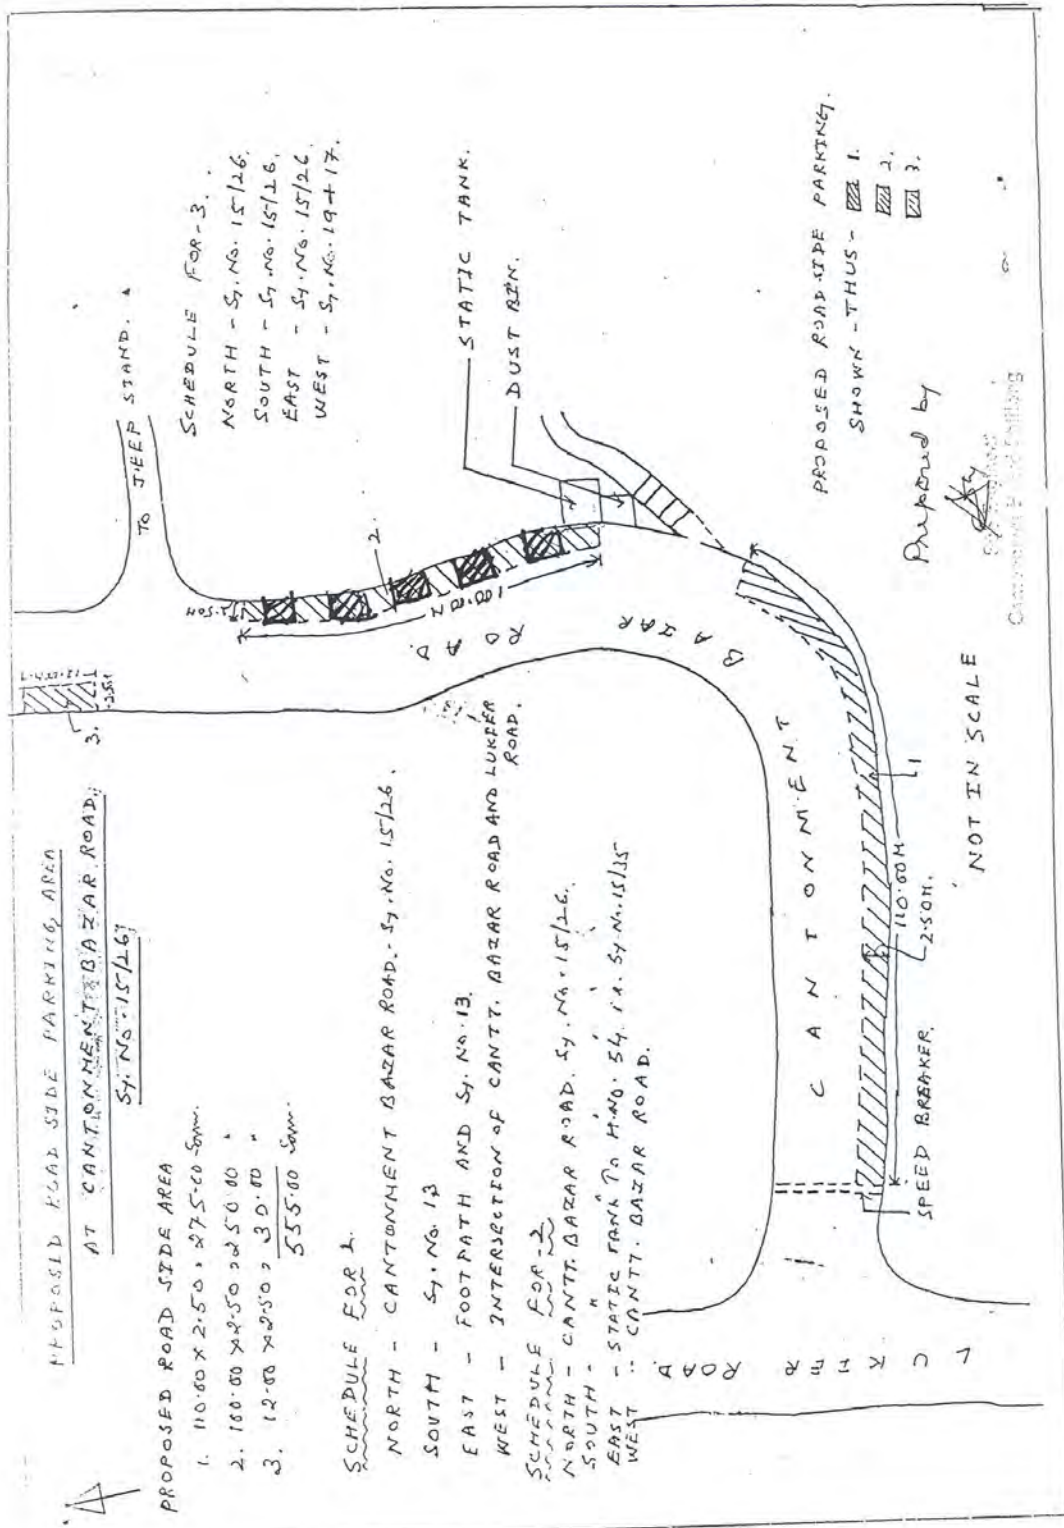 PROPOSED ROAD SIDE PARKING AREA
AT CANTONMENT BAZAR ROAD,
Sy. No. 15/26,
PROPOSED ROAD SIDE AREA
1. 110.00 x 2.50 = 275.00 Sqm.
2. 100.00 x 2.50 = 250.00 "
3. 12.00 x 2.50 = 30.00 "
555.00 Sqm.
SCHEDULE FOR 1.
NORTH - CANTONMENT BAZAR ROAD. Sy. No. 15/26.
SOUTH - Sy. No. 13
EAST - FOOTPATH AND Sy. No. 13.
WEST - INTERSECTION OF CANTT. BAZAR ROAD AND LUKIER ROAD.
SCHEDULE FOR-2
NORTH - CANTT. BAZAR ROAD. Sy. No. 15/26.
SOUTH - " " " "
EAST - STATIC TANK TO H.NO. 54. i.e. Sy. No. 15/35
WEST :- CANTT. BAZAR ROAD.
3.
2.50M
TO JEEP STAND.
SCHEDULE FOR-3.
NORTH - Sy. No. 15/26.
SOUTH - Sy. No. 15/26.
EAST - Sy. No. 15/26
WEST - Sy. No. 19+17.
2.50M
100.00M
2.
STATIC TANK.
DUST BIN.
CANTONMENT BAZAR ROAD.
LUKIER ROAD.
SPEED BREAKER.
110.00M
2.50M.
1
NOT IN SCALE
PROPOSED ROAD SIDE PARKING.
SHOWN - THUS - 1.
2.
3.
Prepared by